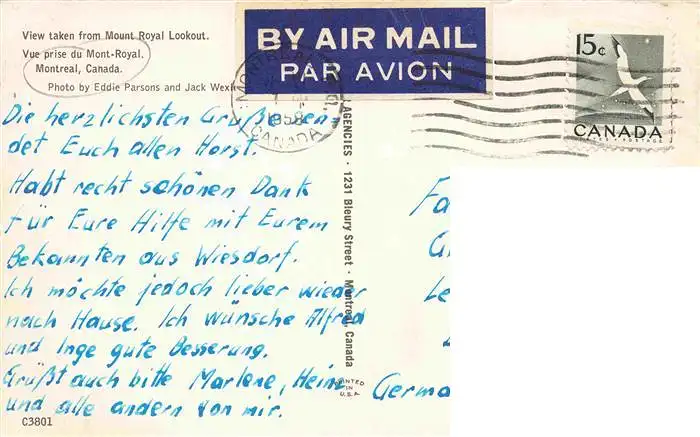 View taken from Mount Royal Lookout.
Vue prise du Mont-Royal.
Montreal, Canada.
Photo by Eddie Parsons and Jack Wexl
BY AIR MAIL
PAR AVION
MONTREAL
1958
CANADA
15¢
CANADA
POSTAGE
Die herzlichsten Grüße sen-
det Euch allen Horst.
Habt recht schönen Dank
für Eure Hilfe mit Eurem
Bekannten aus Wiesdorf.
Ich möchte jedoch lieber wieder
nach Hause. Ich wünsche Alfred
und Inge gute Besserung.
Grüßt auch bitte Marlene, Heinz
und alle andern von mir.
C3801
AGENCIES · 1231 Bleury Street · Montreal, Canada
PRINTED
IN
U.S.A
Fa
Le
Germa